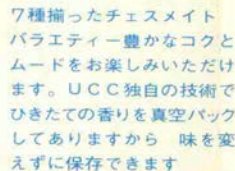 7種揃ったチェスメイト
バラエティー豊かなコクと
ムードをお楽しみいただけ
ます。UCC独自の技術で
ひきたての香りを真空パック
してありますから　味を変
えずに保存できます